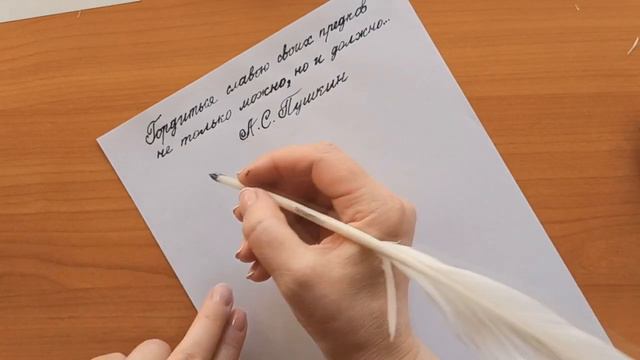 Гордиться славою своих предков
не только можно, но и должно...
А.С. Пушкин